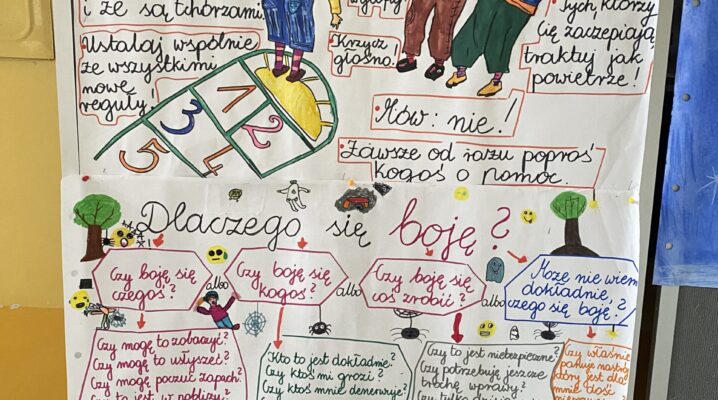 i że są tchórzami.
Ustalaj wspólnie
ze wszystkimi
nowe
reguły!
1
2
3
4
5
Krzycz
głośno!
Tych, którzy
Cię zaczepiają
traktuj jak
powietrze!
Mów: nie!
Zawsze od razu poproś
kogoś o pomoc.
Dlaczego się boję?
Czy boję się
czegoś?
albo
Czy boję się
kogoś?
albo
Czy boję się
coś zrobić?
albo
Może nie wiem
dokładnie,
czego się boję?
Czy mogę to zobaczyć?
Czy mogę to usłyszeć?
Czy mogę poczuć zapach?
Czy jest w pobliżu
Kto to jest dokładnie?
Czy ktoś mi grozi?
Czy ktoś mnie denerwuje?
Czy to jest niebezpieczne?
Czy potrzebuję jeszcze
trochę wprawy?
Czy tylko
Czy właśnie
panuje nastrój
który jest dla
mnie dość